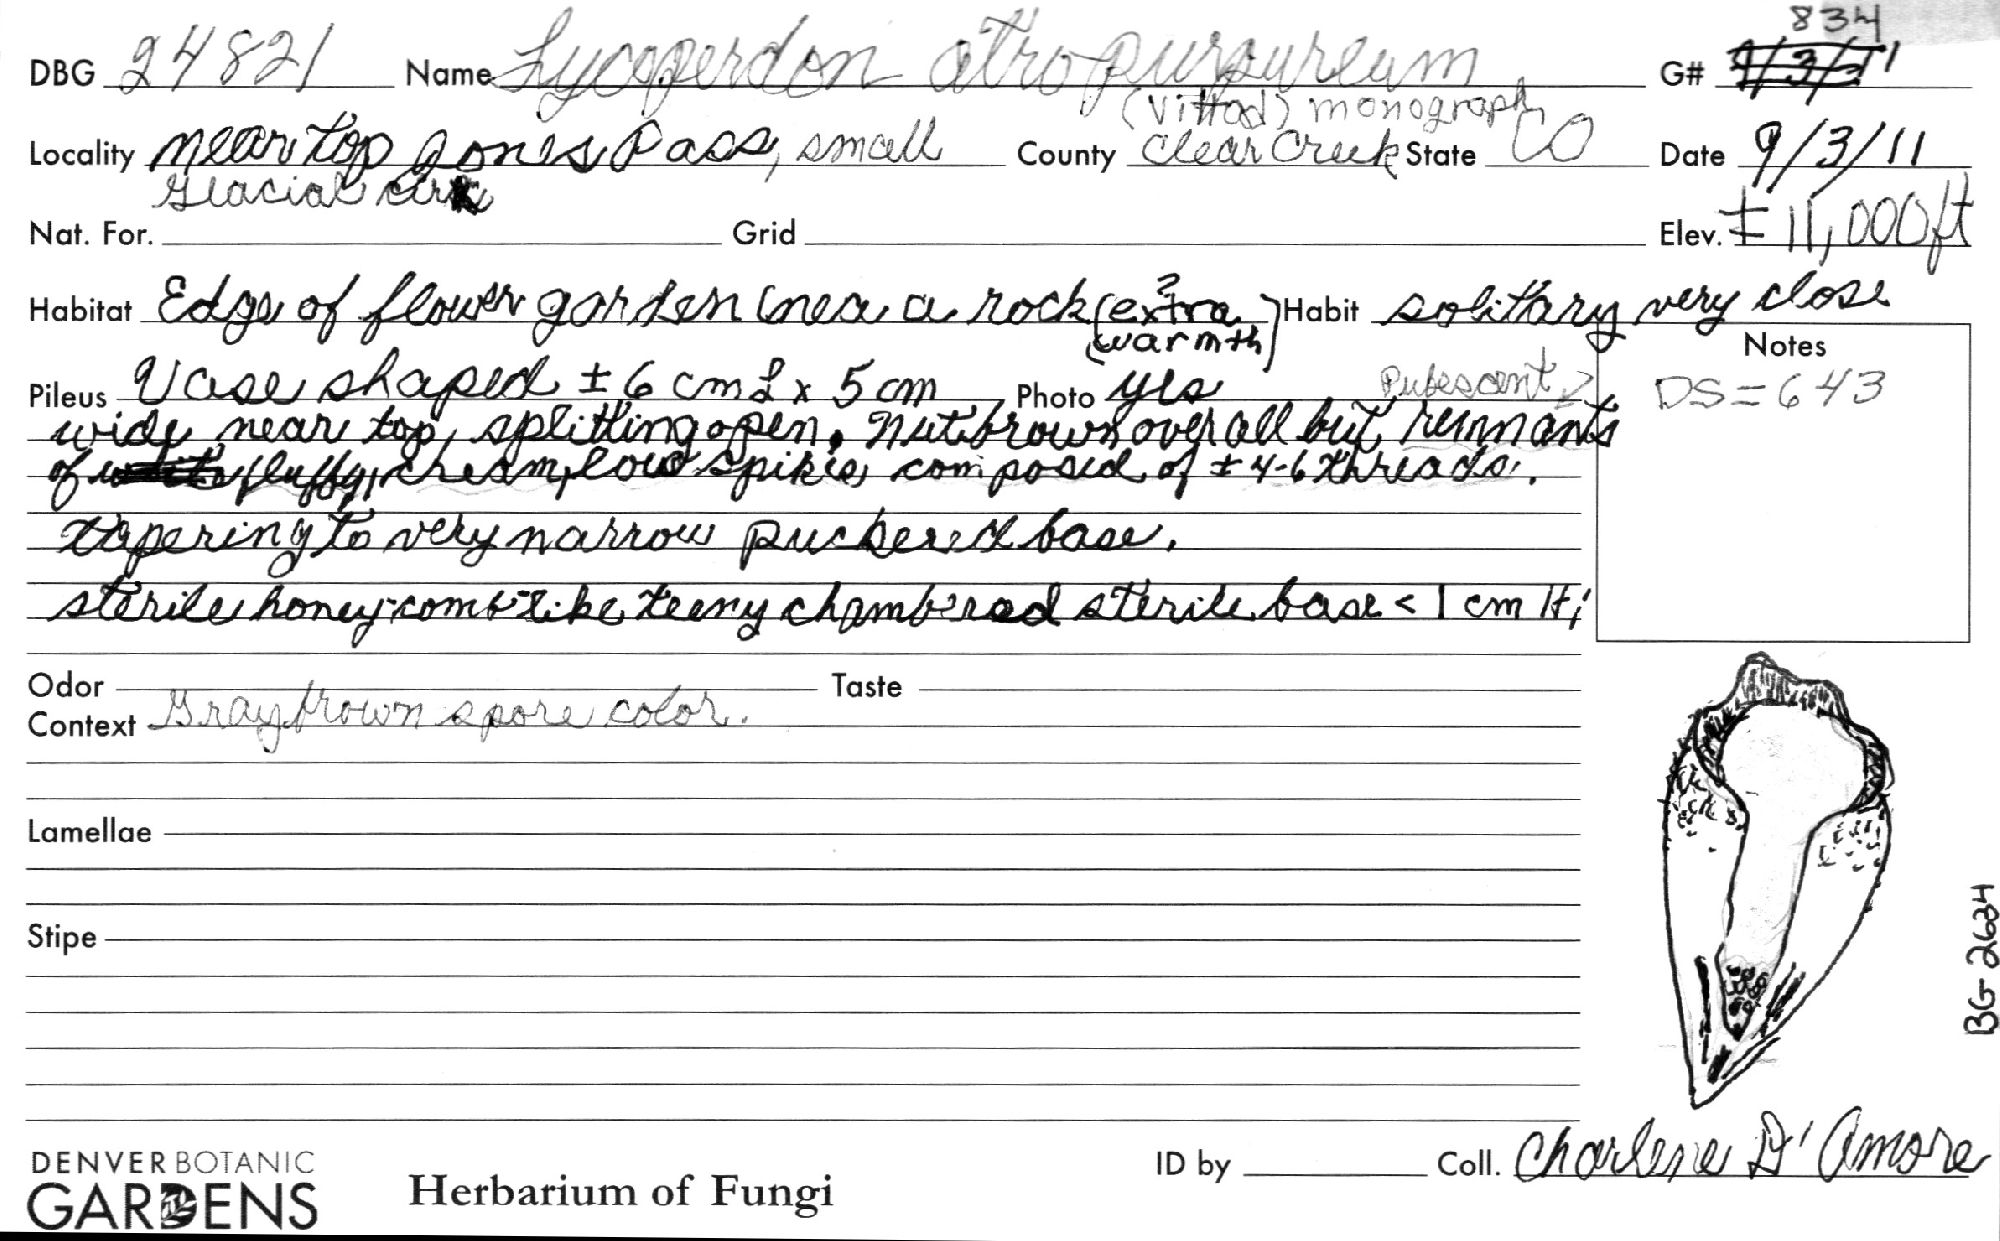 834
DBG 24821 Name Lycoperdon atropurpureum G# 9/3/11
(Vittad) monograph
Locality near top Jones Pass, small County Clear Creek State CO Date 9/3/11
Glacial
Nat. For. Grid Elev. ± 11,000ft
Habitat Edge of flower garden (nea a rock (extra ? Habit solitary very close
(warmth)
Notes
Pileus Vase shaped ± 6 cm L x 5 cm Photo yes Pubescent DS = 643
wide near top, splitting open. Nutbrown overall but remnants
of fluffy, cream, low spikes composed of ± 4-6 threads.
tapering to very narrow puckered base.
sterile honey-comb-like teeny chambered sterile base < 1 cm Ht;
Odor Taste
Context Gray brown spore color.
Lamellae
Stipe
BG-2634
DENVER BOTANIC
GARDENS
Herbarium of Fungi
ID by Coll. Charlene D'Amore